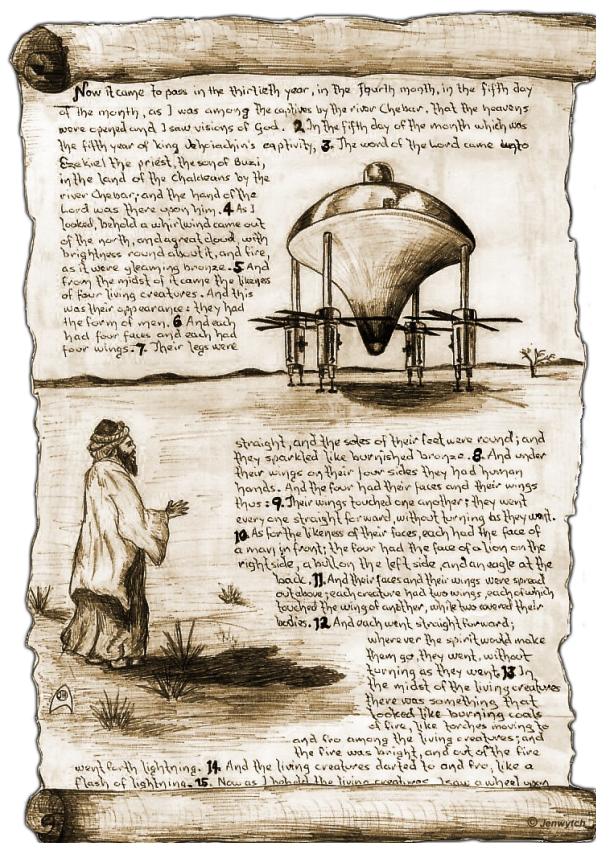 Now it came to pass in the thirtieth year, in the fourth month, in the fifth day
of the month, as I was among the captives by the river Chebar, that the heavens
were opened and I saw visions of God. 2. In the fifth day of the month which was
the fifth year of king Jehoiachin's captivity, 3. The word of the Lord came unto
Ezekiel the priest, the son of Buzi,
in the land of the Chaldeans by the
river Chebar; and the hand of the
Lord was there upon him. 4 As I
looked, behold a whirlwind came out
of the north, and a great cloud, with
brightness round about it, and fire,
as it were gleaming bronze. 5 And
from the midst of it came the likeness
of four living creatures. And this
was their appearance: they had
the form of men. 6 And each
had four faces and each had
four wings. 7. Their legs were
straight, and the soles of their feet were round; and
they sparkled like burnished bronze. 8. And under
their wings on their four sides they had human
hands. And the four had their faces and their wings
thus: 9. Their wings touched one another; they went
every one straight forward, without turning as they went.
10. As for the likeness of their faces, each had the face of
a man in front; the four had the face of a lion on the
right side, a bull on the left side, and an eagle at the
back. 11. And their faces and their wings were spread
out above; each creature had two wings, each of which
touched the wing of another, while two covered their
bodies. 12. And each went straight forward;
wherever the spirit would make
them go, they went, without
turning as they went. 13 In
the midst of the living creatures
there was something that
looked like burning coals
of fire, like torches moving to
and fro among the living creatures; and
the fire was bright, and out of the fire
went forth lightning. 14. And the living creatures darted to and fro, like a
flash of lightning. 15. Now as I behold the living creatures, I saw a wheel upon
© Jenwytch